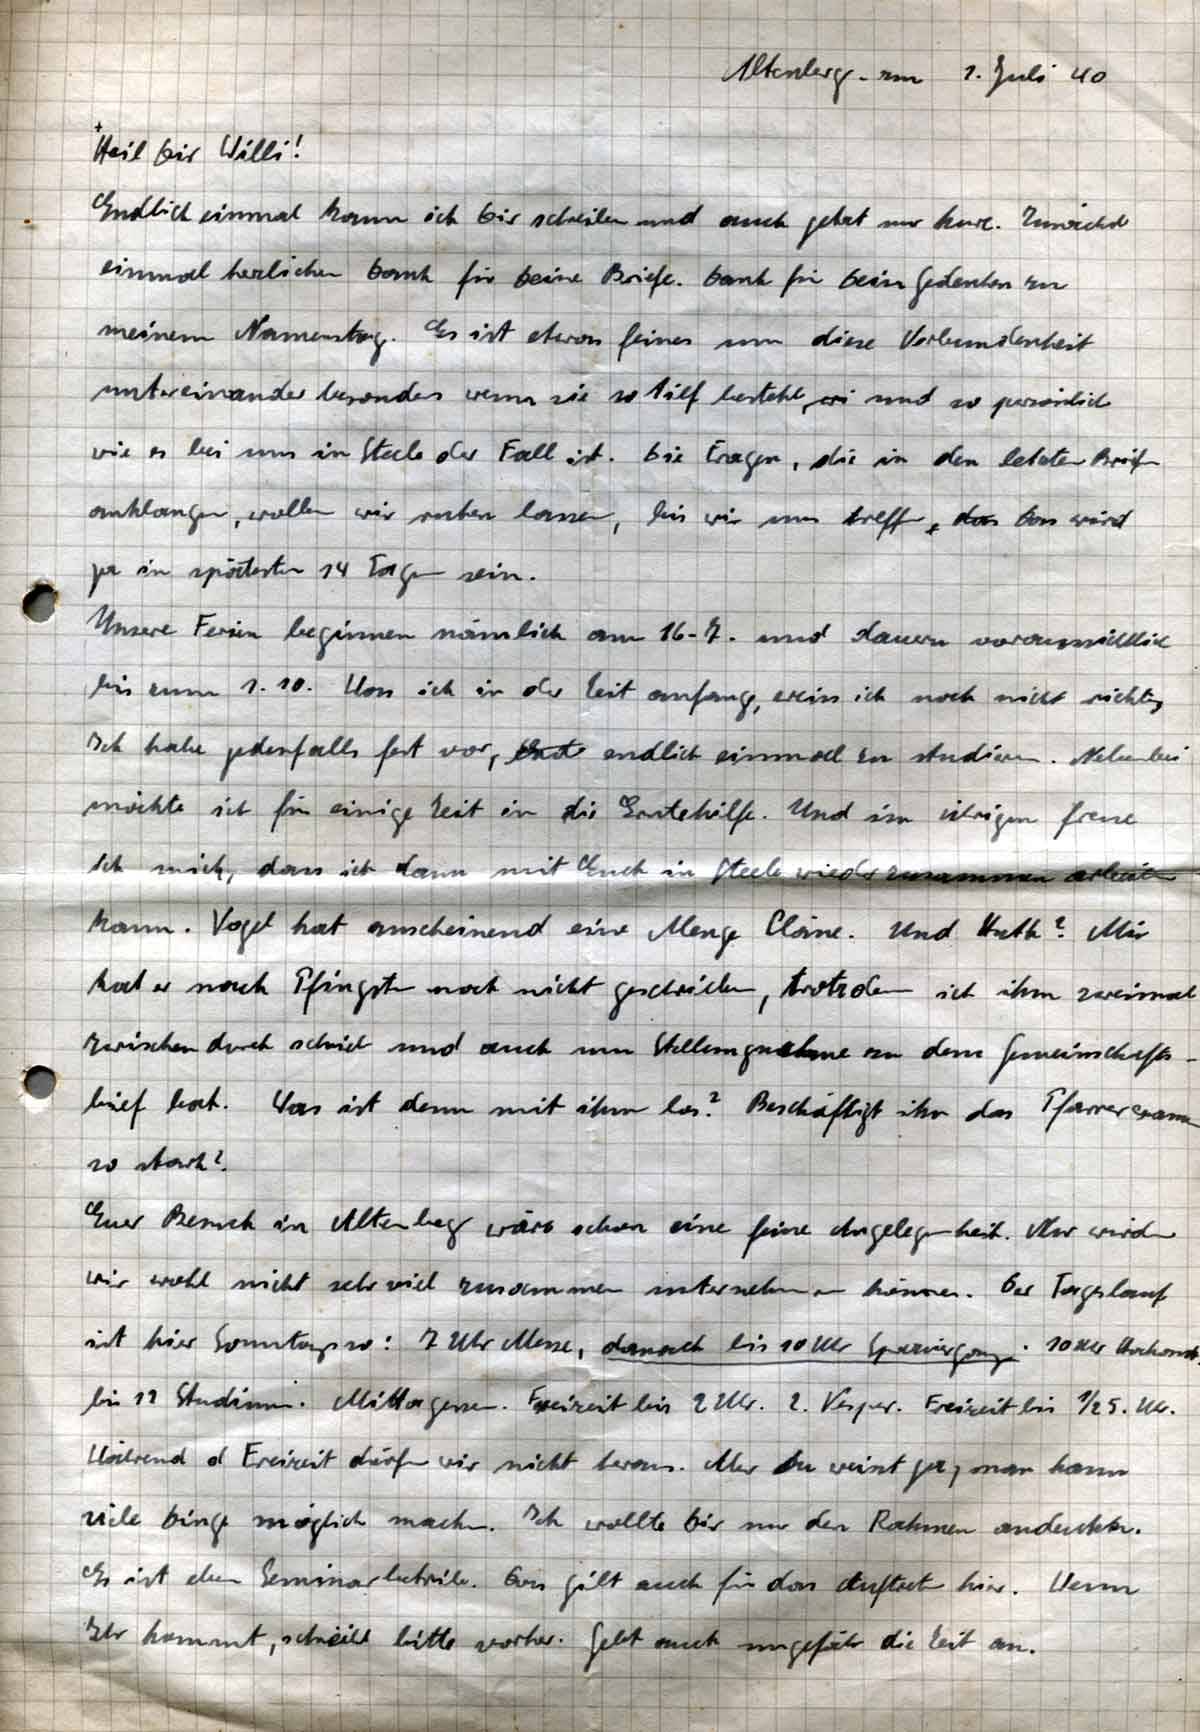 Altenberg - am 1. Juli 40
+
Heil Dir Willi!
Endlich einmal kann ich Dir schreiben und auch jetzt nur kurz. Zunächst
einmal herzlichen Dank für Deine Briefe. Dank für Dein Gedenken zu
meinem Namenstag. Es ist etwas feines um diese Verbundenheit
untereinander besonders wenn sie so tief besteht, und so persönlich
wie es bei uns in Steele der Fall ist. Die Fragen, die in den letzten Briefen
anklangen, wollen wir ruhen lassen, bis wir uns treffen, das Das wird
ja in spätestens 14 Tagen sein.
Unsere Ferien beginnen nämlich am 16-7. und dauern voraussichtlich
bis zum 1.10. Was ich in der Zeit anfange, weiss ich noch nicht richtig
Ich habe jedenfalls fest vor, endlich einmal zu studieren. Nebenbei
möchte ich für einige Zeit in die Erntehilfe. Und im übrigen freue
ich mich, dass ich dann mit Euch in Steele wieder zusammen arbeiten
kann. Vogel hat anscheinend eine Menge Pläne. Und Huth? Mir
hat er nach Pfingsten noch nicht geschrieben, trotzdem ich ihm zweimal
zwischendurch schrieb und auch um Stellungnahme zu dem Gemeinschafts-
brief bat. Was ist denn mit ihm los? Beschäftigt ihn das
so stark?
Euer Besuch in Altenberg wäre schon eine feine Angelegenheit. Nur würden
wir wohl nicht sehr viel zusammen unternehmen können. Der Tageslauf
ist hier Sonntags so: 7 Uhr Messe, danach bis 10 Uhr Spaziergang. 10 Uhr Hochamt.
bis 12 Studium. Mittagessen. Freizeit bis 2 Uhr. 2. Vesper. Freizeit bis 1/2 5. Uhr.
Während d Freizeit dürfen wir nicht heraus. Aber Du weisst ja, man kann
viele Dinge möglich machen. Ich wollte Dir nur den Rahmen andeuten.
Es ist eben Seminarbetrieb. Das gilt auch für das Auftreten hier. Wenn
Ihr kommt, schreibt bitte vorher. Gebt auch ungefähr die Zeit an.